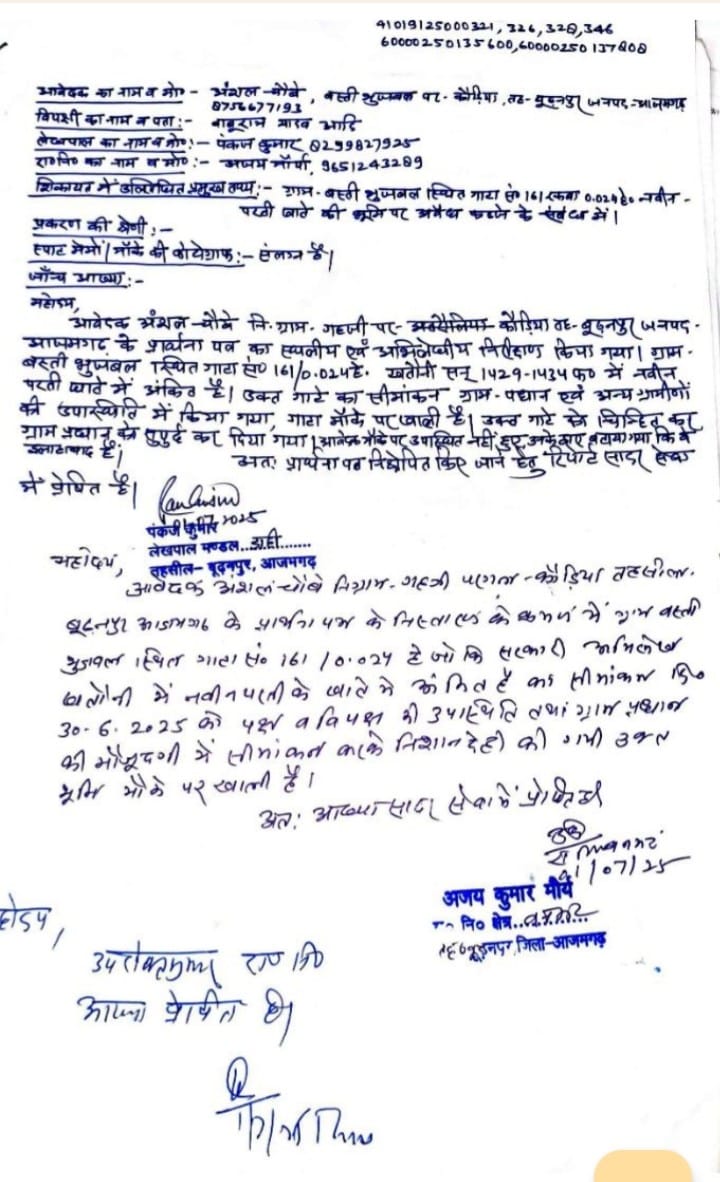 41019125000321, 326, 328, 346
60000250135600, 60000250137808
आवेदक का नाम व मो०- अंशल चौबे, बस्ती भुजबल पर- कौड़िया, तह- बूढ़नपुर जनपद-आजमगढ़
8756677193
विपक्षी का नाम व पता:- बाबूराम यादव आदि
लेखपाल का नाम व मो०:- पंकज कुमार 8299827925
रा०नि० का नाम व मो०:- अजय मौर्या, 9651243289
शिकायत में उल्लिखित प्रमुख तथ्य:- ग्राम- बस्ती भुजबल स्थित गाटा सं० 161 रकबा 0.024हे० नवीन-
परती खाते की भूमि पर अवैध कब्जे के संबंध में।
प्रकरण की श्रेणी:-
स्पाट मेमो/मौके की फोटोग्राफ:- संलग्न है।
जाँच आख्या:-
महोदय,
आवेदक अंशल चौबे नि.ग्राम- गहजी पर- कौड़िया तह- बूढ़नपुर जनपद-
आजमगढ़ के प्रार्थना पत्र का स्थलीय एवं अभिलेखीय निरीक्षण किया गया। ग्राम-
बस्ती भुजबल स्थित गाटा सं० 161/0.024हे. खतौनी सन् 1429-1434 फ० में नवीन
परती खाते में अंकित है। उक्त गाटे का सीमांकन ग्राम-प्रधान एवं अन्य ग्रामीणों
की उपस्थिति में किया गया, गाटा मौके पर खाली है। उक्त गाटे को चिन्हित कर
ग्राम प्रधान को सुपुर्द कर दिया गया। आवेदक मौके पर उपस्थित नहीं हुए, उनके द्वारा बताया गया कि वे
इलाहाबाद हैं।
अतः प्रार्थना पत्र निक्षेपित किए जाने हेतु रिपोर्ट सादर सेवा
में प्रेषित है।
07/2025
पंकज कुमार
लेखपाल मण्डल..
तहसील- बूढ़नपुर, आजमगढ़
महोदय,
आवेदक अंशल चौबे नि ग्राम- गहजी परगना- कौड़िया तहसील-
बूढ़नपुर आजमगढ़ के प्रार्थना पत्र के निस्तारण के क्रम में ग्राम बस्ती
भुजबल स्थित गाटा सं० 161/0.024 है जो कि सरकारी अभिलेख
खतौनी में नवीन परती के खाते में अंकित है का सीमांकन दि०
30-6-2025 को पक्ष व विपक्ष की उपस्थिति तथा ग्राम प्रधान
की मौजूदगी में सीमांकन करके निशानदेही की गयी उक्त
भूमि मौके पर खाली है।
अतः आख्या सादर सेवा में प्रेषित है
/07/25
अजय कुमार मौर्य
नि० क्षेत्र..
तह० बूढ़नपुर, जिला-आजमगढ़
होदय,
उपरोक्तानुसार रा० नि०
आख्या प्रेषित है।